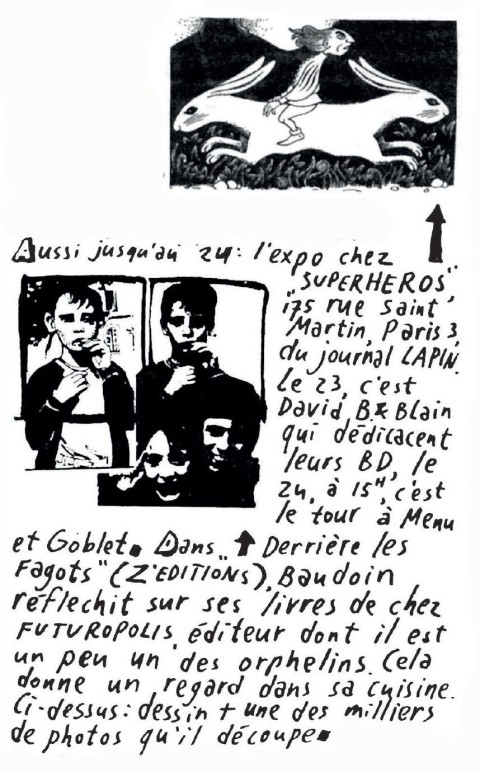 Aussi jusqu'au 24: l'expo chez
"SUPERHEROS",
175 rue Saint
Martin, Paris 3,
du journal LAPIN.
Le 23, c'est
David B & Blain
qui dédicacent
leurs BD, le
24, à 15H, c'est
le tour à Menu
et Goblet. Dans "Derrière les
Fagots" (Z'EDITIONS), Baudoin
réflechit sur ses livres de chez
FUTUROPOLIS, éditeur dont il est
un peu un des orphelins. Cela
donne un regard dans sa cuisine.
Ci-dessus: dessin + une des milliers
de photos qu'il découpe.